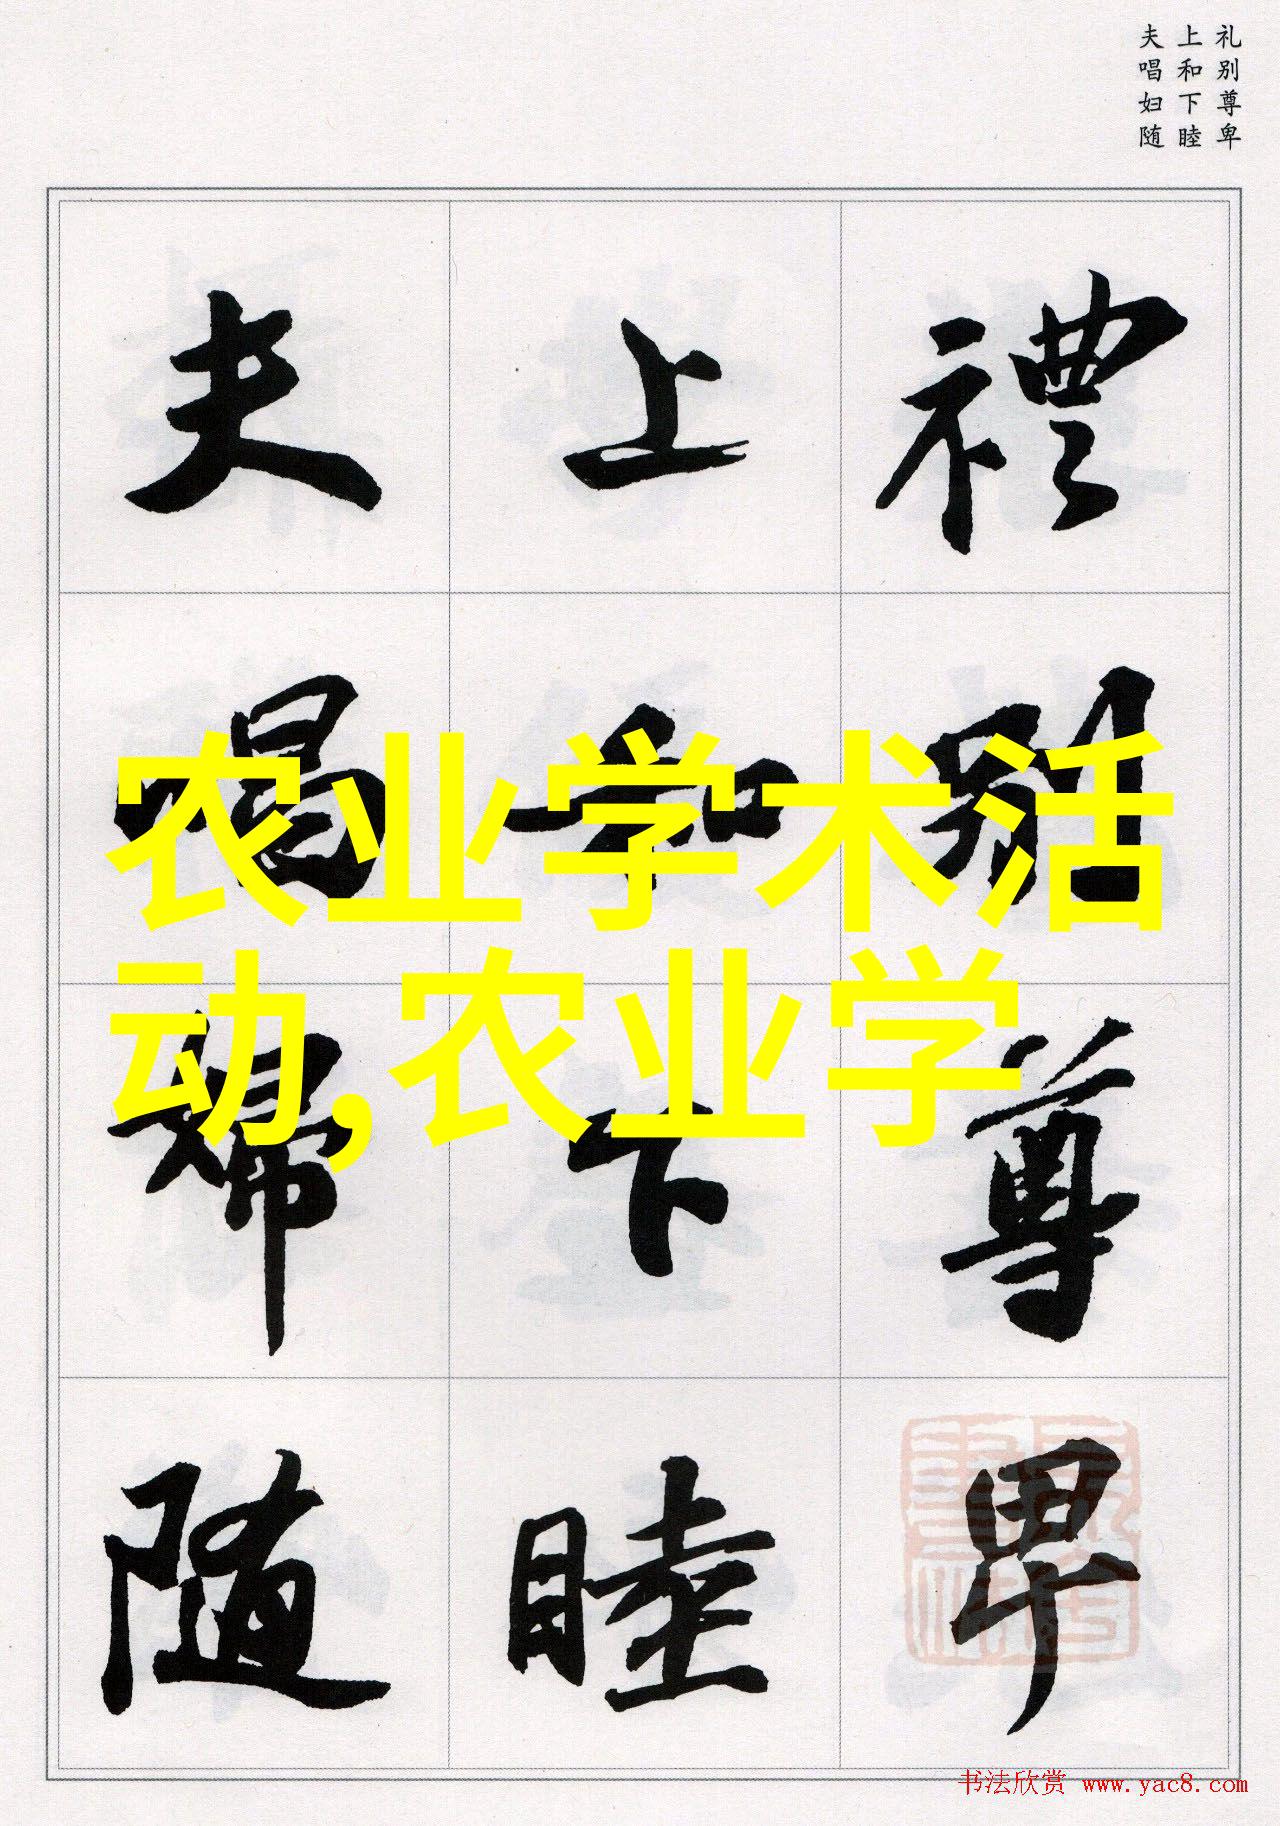 礼别尊卑
上和下睦
夫唱妇随
禮別尊卑
上和下睦
夫唱婦随
农业学术活
动,农业学
书法欣赏 www.yac8.com